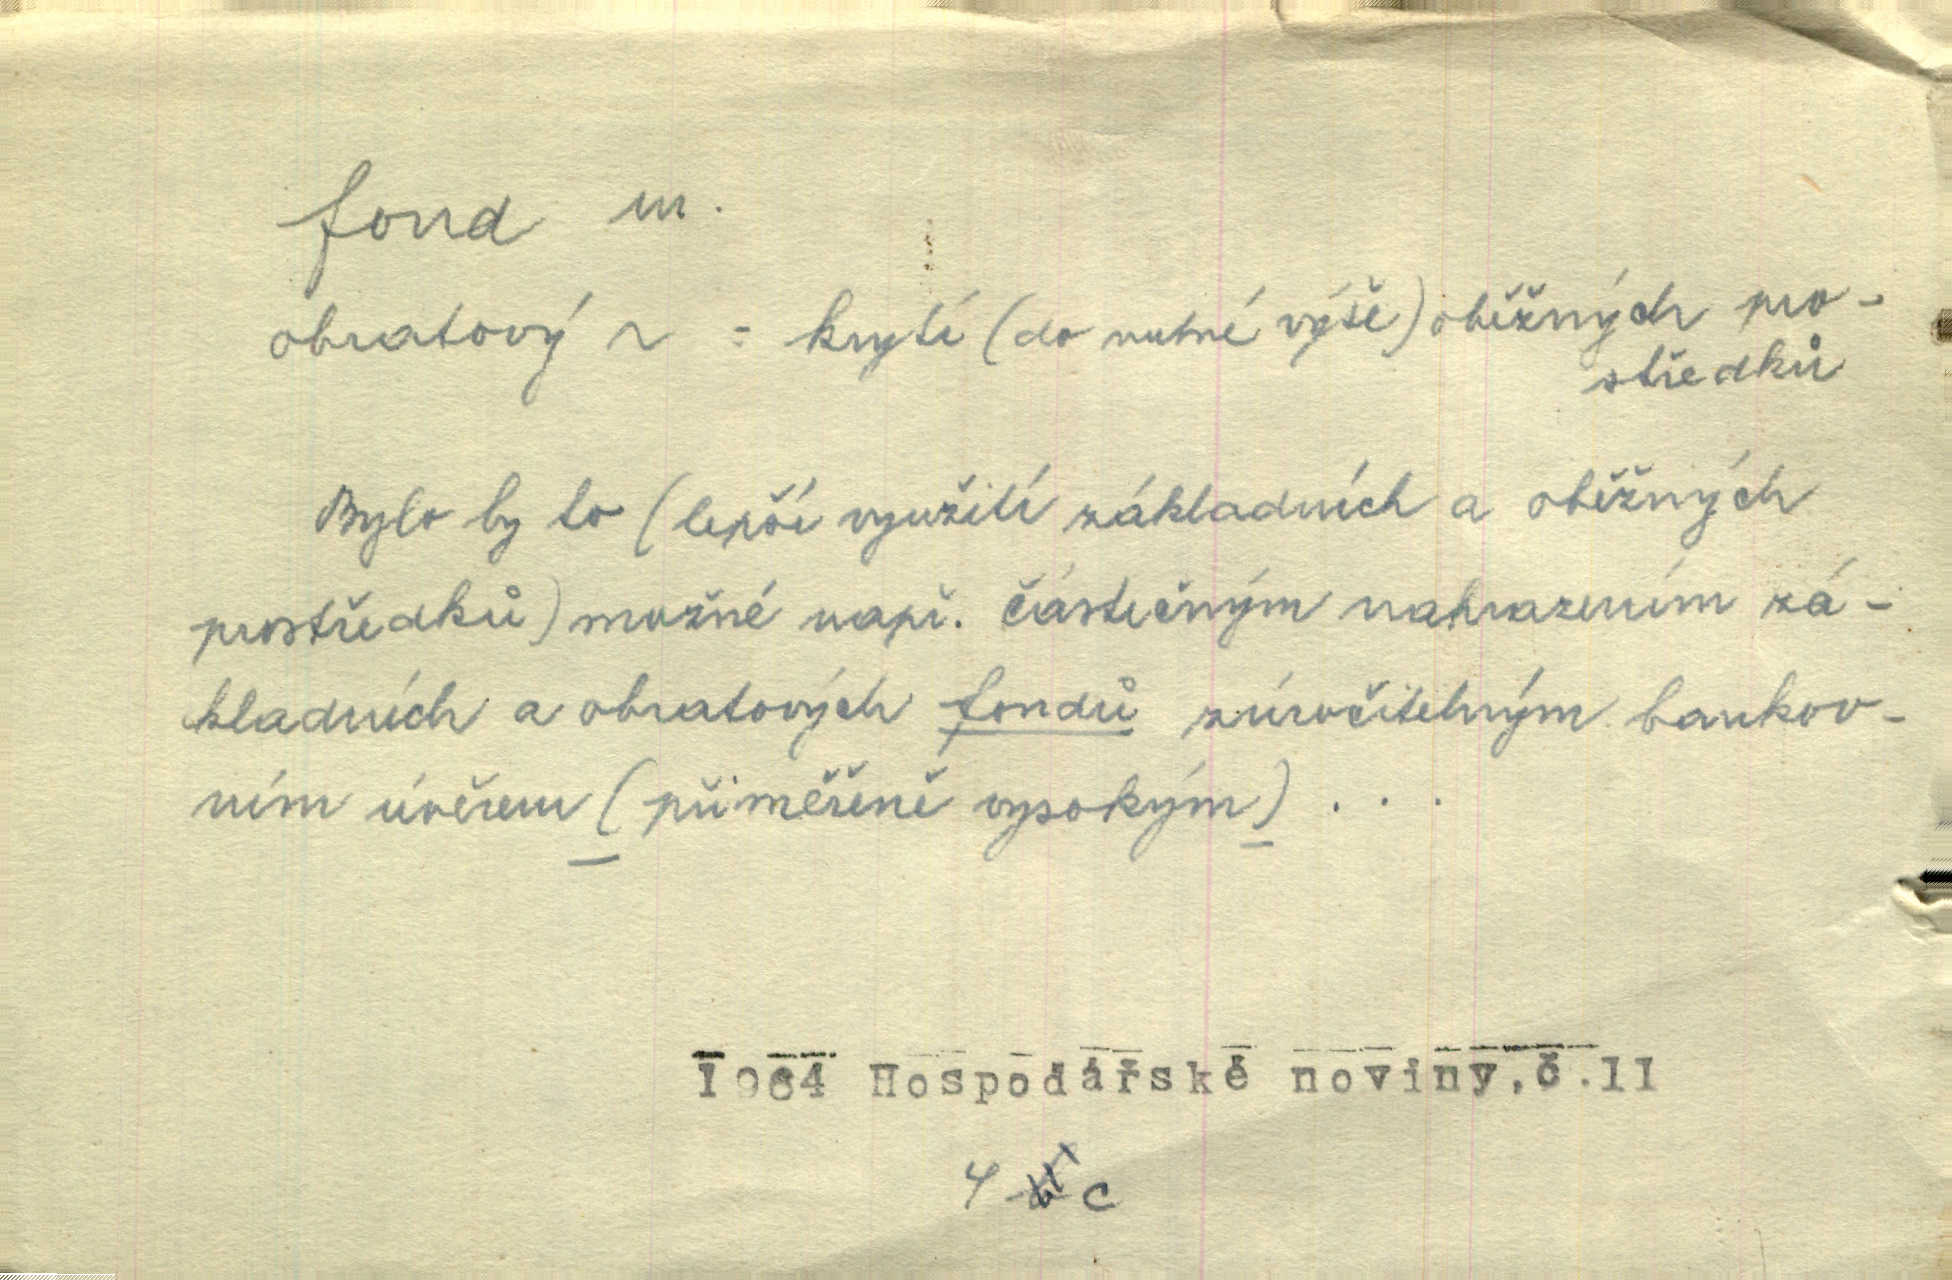 fond m.
obratový ~ = krytí (do nutné výše) oběžných pro-
středků
Bylo by to (lepší využití základních a oběžných
prostředků) možné např. částečným nahrazením zá-
kladních a obratových fondů zúročitelným bankov-
ním úvěrem (přiměřeně vysokým) . . .
1964 Hospodářské noviny,č.11
4 c